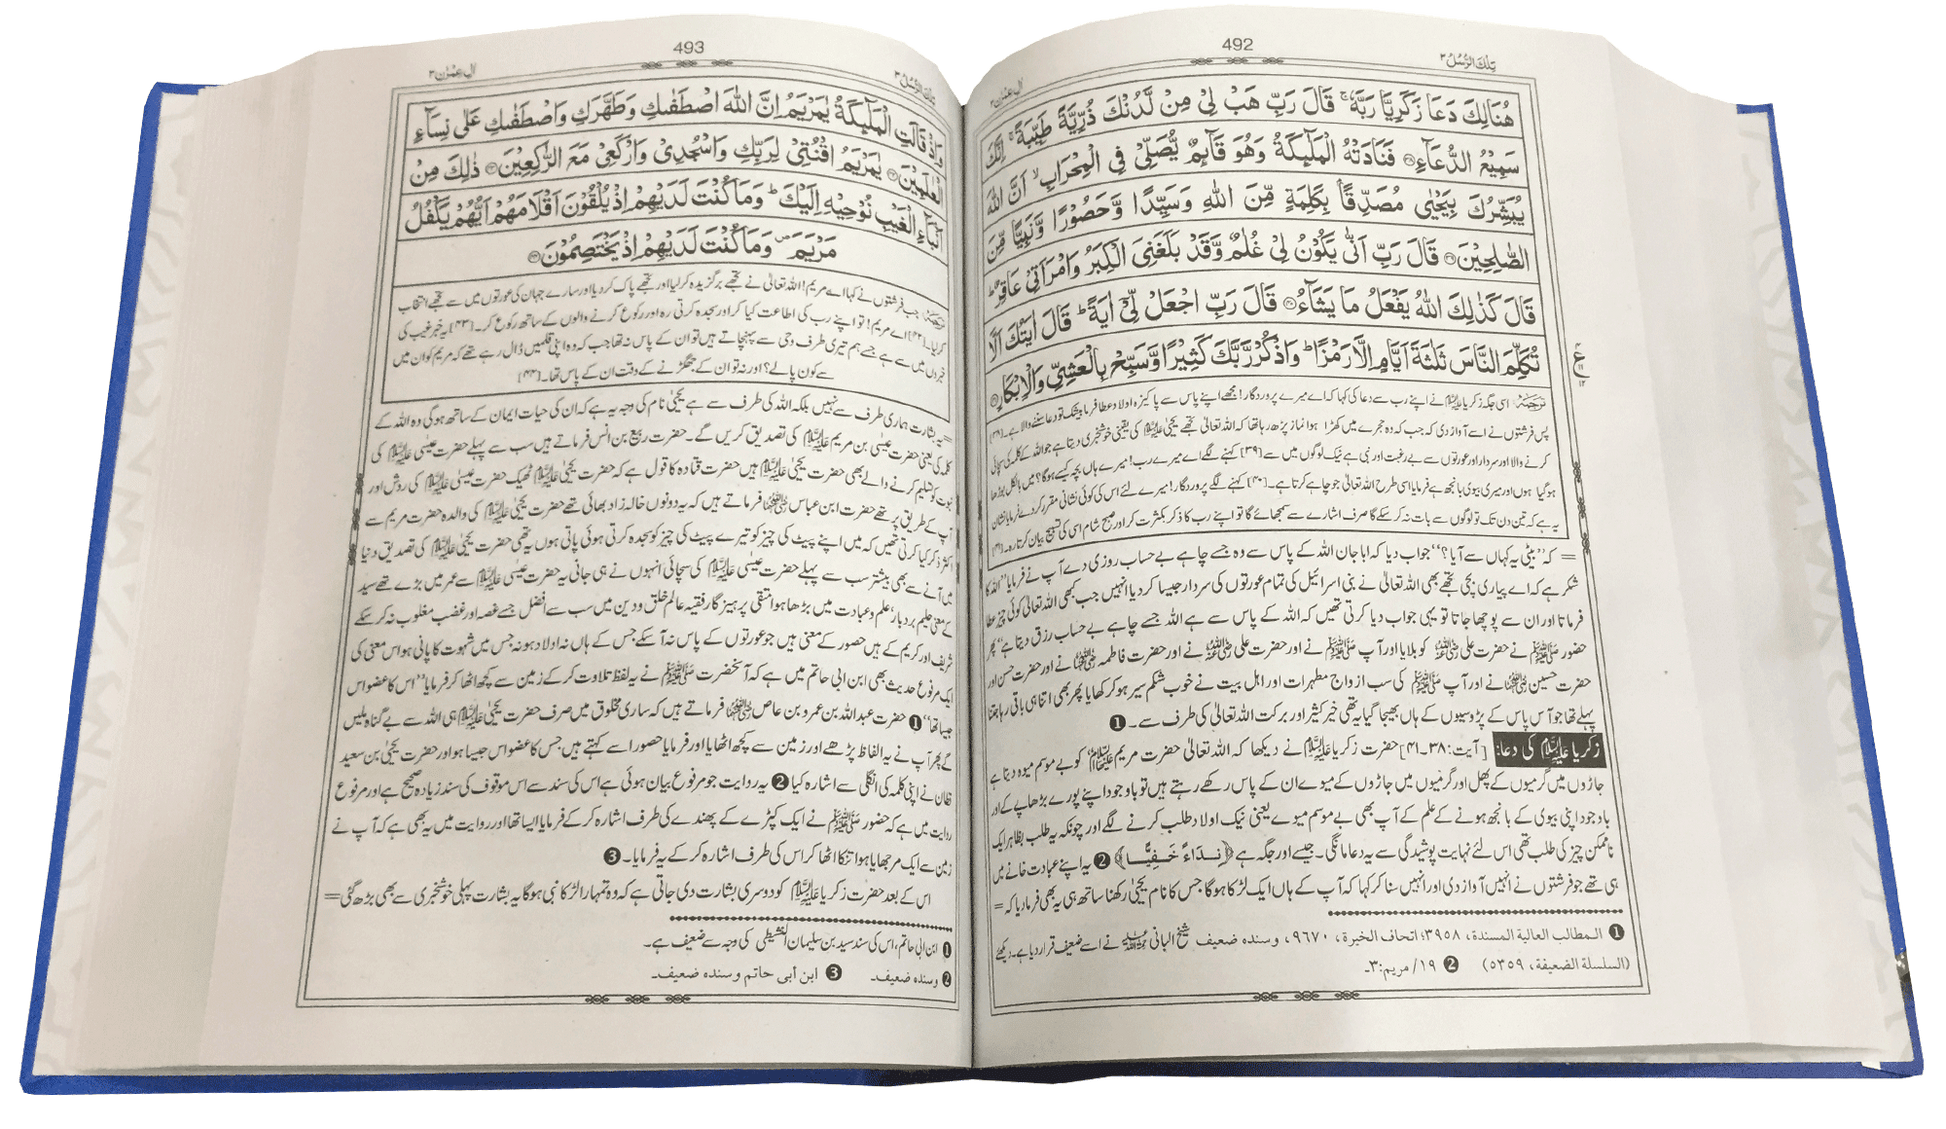 492
تِلْكَ الرُّسُلُ ۳
اٰلِ عِمْرٰن ۳
هُنَالِكَ دَعَا زَكَرِيَّا رَبَّهٗ ۚ قَالَ رَبِّ هَبْ لِیْ مِنْ لَّدُنْكَ ذُرِّيَّةً طَيِّبَةً ۚ اِنَّكَ
سَمِيْعُ الدُّعَآءِ ۝۳۸ فَنَادَتْهُ الْمَلٰٓئِكَةُ وَهُوَ قَآئِمٌ يُّصَلِّیْ فِی الْمِحْرَابِ ۙ اَنَّ اللّٰهَ
يُبَشِّرُكَ بِيَحْيٰى مُصَدِّقًۢا بِكَلِمَةٍ مِّنَ اللّٰهِ وَسَيِّدًا وَّحَصُوْرًا وَّنَبِيًّا مِّنَ
الصّٰلِحِيْنَ ۝۳۹ قَالَ رَبِّ اَنّٰى يَكُوْنُ لِیْ غُلٰمٌ وَّقَدْ بَلَغَنِیَ الْكِبَرُ وَامْرَاَتِیْ عَاقِرٌ ؕ
قَالَ كَذٰلِكَ اللّٰهُ يَفْعَلُ مَا يَشَآءُ ۝۴۰ قَالَ رَبِّ اجْعَلْ لِّیْٓ اٰيَةً ؕ قَالَ اٰيَتُكَ اَلَّا
تُكَلِّمَ النَّاسَ ثَلٰثَةَ اَيَّامٍ اِلَّا رَمْزًا ؕ وَاذْكُرْ رَّبَّكَ كَثِيْرًا وَّسَبِّحْ بِالْعَشِیِّ وَالْاِبْكَارِ ۝۴۱
ترجمہ: اسی جگہ زکریا علیہ السلام نے اپنے رب سے دعا کی کہا کہ اے میرے پروردگار! مجھے اپنے پاس سے پاکیزہ اولاد عطا فرما بیشک تو دعا سننے والا ہے۔[۳۸]
پس فرشتوں نے اسے آواز دی کہ جب کہ وہ حجرے میں کھڑا ہوا نماز پڑھ رہا تھا کہ اللہ تعالیٰ تجھے یحییٰ علیہ السلام کی یقینی خوشخبری دیتا ہے جو اللہ کے کلمہ کی سچائی
کرنے والا اور سردار اور عورتوں سے بے رغبت اور نبی ہے نیک لوگوں میں سے [۳۹] کہنے لگے اے میرے رب! میرے ہاں بچہ کیسے ہوگا؟ میں بالکل بوڑھا
ہوگیا ہوں اور میری بیوی بانجھ ہے فرمایا اسی طرح اللہ تعالیٰ جو چاہے کرتا ہے۔[۴۰] کہنے لگے پروردگار! میرے لئے اس کی کوئی نشانی مقرر کر دے فرمایا نشان
یہ ہے کہ تین دن تک تو لوگوں سے بات نہ کر سکے گا صرف اشارے سے سمجھائے گا تو اپنے رب کا ذکر بکثرت کر اور صبح شام اسی کی تسبیح بیان کرتا رہ۔[۴۱]
= کہ ’’بیٹی یہ کہاں سے آیا؟‘‘ جواب دیا کہ ابا جان اللہ کے پاس سے وہ جسے چاہے بے حساب روزی دے آپ نے فرمایا ’’اللہ کا
شکر ہے کہ اے پیاری بچی تجھے بھی اللہ تعالیٰ نے بنی اسرائیل کی تمام عورتوں کی سردار جیسا کر دیا انہیں جب بھی اللہ تعالیٰ کوئی چیز عطا
فرماتا اور ان سے پوچھا جاتا تو یہی جواب دیا کرتی تھیں کہ اللہ کے پاس سے ہے اللہ جسے چاہے بے حساب رزق دیتا ہے‘‘ پھر
حضور ﷺ نے حضرت علی رضی اللہ عنہ کو بلایا اور آپ ﷺ نے اور حضرت علی رضی اللہ عنہ نے اور حضرت فاطمہ رضی اللہ عنہا نے اور حضرت حسن اور
حضرت حسین رضی اللہ عنہما نے اور آپ ﷺ کی سب ازواج مطہرات اور اہل بیت نے خوب شکم سیر ہو کر کھایا پھر بھی اتنا ہی باقی رہا جتنا
پہلے تھا جو آس پاس کے پڑوسیوں کے ہاں بھیجا گیا یہ تھی خیر کثیر اور برکت اللہ تعالیٰ کی طرف سے۔ ❶
زکریا علیہ السلام کی دعا: [آیت: ۳۸۔۴۱] حضرت زکریا علیہ السلام نے دیکھا کہ اللہ تعالیٰ حضرت مریم علیہا السلام کو بے موسم میوہ دیتا ہے
جاڑوں میں گرمیوں کے پھل اور گرمیوں میں جاڑوں کے میوے ان کے پاس رکھے رہتے ہیں تو باوجود اپنے پورے بڑھاپے کے اور
باوجود اپنی بیوی کے بانجھ ہونے کے علم کے آپ بھی بے موسم میوے یعنی نیک اولاد طلب کرنے لگے اور چونکہ یہ طلب بظاہر ایک
ناممکن چیز کی طلب تھی اس لئے نہایت پوشیدگی سے یہ دعا مانگی۔ جیسے اور جگہ ہے ﴿نِدَاءً خَفِيًّا﴾ ❷ یہ اپنے عبادت خانے میں
ہی تھے جو فرشتوں نے انہیں آواز دی اور انہیں سنا کر کہا کہ آپ کے ہاں ایک لڑکا ہوگا جس کا نام یحییٰ رکھنا ساتھ ہی یہ بھی فرما دیا کہ =
❶ المطالب العالية المسندة، ۳۹۵۸؛ اتحاف الخيرة، ۹٦۷۰، وسنده ضعيف شیخ البانی رحمہ اللہ نے اسے ضعیف قرار دیا ہے۔ دیکھئے
(السلسلة الضعيفة، ۵۳۵۹) ❷ ۱۹/ مريم:۳۔
493
تِلْكَ الرُّسُلُ ۳
اٰلِ عِمْرٰن ۳
وَاِذْ قَالَتِ الْمَلٰٓئِكَةُ يٰمَرْيَمُ اِنَّ اللّٰهَ اصْطَفٰىكِ وَطَهَّرَكِ وَاصْطَفٰىكِ عَلٰى نِسَآءِ
الْعٰلَمِيْنَ ۝۴۲ يٰمَرْيَمُ اقْنُتِیْ لِرَبِّكِ وَاسْجُدِیْ وَارْكَعِیْ مَعَ الرّٰكِعِيْنَ ۝۴۳ ذٰلِكَ مِنْ
اَنْۢبَآءِ الْغَيْبِ نُوْحِيْهِ اِلَيْكَ ؕ وَمَا كُنْتَ لَدَيْهِمْ اِذْ يُلْقُوْنَ اَقْلَامَهُمْ اَيُّهُمْ يَكْفُلُ
مَرْيَمَ ۪ وَمَا كُنْتَ لَدَيْهِمْ اِذْ يَخْتَصِمُوْنَ ۝۴۴
ترجمہ: جب فرشتوں نے کہا اے مریم! اللہ تعالیٰ نے تجھے برگزیدہ کر لیا اور تجھے پاک کر دیا اور سارے جہان کی عورتوں میں سے تجھے انتخاب
کر لیا۔[۴۲] اے مریم! تو اپنے رب کی اطاعت کیا کر اور سجدہ کرتی رہ اور رکوع کرنے والوں کے ساتھ رکوع کر۔[۴۳] یہ خبر غیب کی
خبروں میں سے ہے جسے ہم تیری طرف وحی سے پہنچاتے ہیں تو ان کے پاس نہ تھا جب کہ وہ اپنی قلمیں ڈال رہے تھے کہ مریم کو ان میں
سے کون پالے؟ اور نہ تو ان کے جھگڑنے کے وقت ان کے پاس تھا۔[۴۴]
= یہ بشارت ہماری طرف سے نہیں بلکہ اللہ کی طرف سے ہے یحییٰ نام کی وجہ یہ ہے کہ ان کی حیات ایمان کے ساتھ ہوگی وہ اللہ کے
کلمہ کی یعنی حضرت عیسیٰ بن مریم علیہ السلام کی تصدیق کریں گے۔ حضرت ربیع بن انس فرماتے ہیں سب سے پہلے حضرت عیسیٰ علیہ السلام کی
نبوت کو تسلیم کرنے والے بھی حضرت یحییٰ علیہ السلام ہیں حضرت قتادہ کا قول ہے کہ حضرت یحییٰ علیہ السلام ٹھیک حضرت عیسیٰ علیہ السلام کی روش اور
آپ کے طریق پر تھے حضرت ابن عباس رضی اللہ عنہما فرماتے ہیں کہ یہ دونوں خالہ زاد بھائی تھے حضرت یحییٰ علیہ السلام کی والدہ حضرت مریم سے
اکثر ذکر کیا کرتی تھیں کہ میں اپنے پیٹ کی چیز کو تیرے پیٹ کی چیز کو سجدہ کرتی ہوئی پاتی ہوں یہ تھی حضرت یحییٰ علیہ السلام کی تصدیق دنیا
میں آنے سے بھی پیشتر سب سے پہلے حضرت عیسیٰ علیہ السلام کی سچائی انہوں نے ہی جانی یہ حضرت عیسیٰ علیہ السلام سے عمر میں بڑے تھے سید
کے معنی حلیم بردبار علم و عبادت میں بڑھا ہوا متقی پرہیزگار فقیہ عالم خلق و دین میں سب سے افضل جسے غصہ اور غضب مغلوب نہ کر سکے
شریف اور کریم کے ہیں حصور کے معنی ہیں جو عورتوں کے پاس نہ آ سکے جس کے ہاں نہ اولاد ہو نہ جس میں شہوت کا پانی ہو اس معنی کی
ایک مرفوع حدیث بھی ابن ابی حاتم میں ہے کہ آنحضرت ﷺ نے یہ لفظ تلاوت کر کے زمین سے کچھ اٹھا کر فرمایا ’’اس کا عضو اس
جیسا تھا‘‘ ❶ حضرت عبداللہ بن عمرو بن عاص رضی اللہ عنہما فرماتے ہیں کہ ساری مخلوق میں صرف حضرت یحییٰ علیہ السلام ہی اللہ سے بے گناہ ملیں
گے پھر آپ نے یہ الفاظ پڑھے اور زمین سے کچھ اٹھایا اور فرمایا حصور اسے کہتے ہیں جس کا عضو اس جیسا ہو اور حضرت یحییٰ بن سعید
قطان نے اپنی کلمہ کی انگلی سے اشارہ کیا ❷ یہ روایت جو مرفوع بیان ہوئی ہے اس کی سند سے اس موقوف کی سند زیادہ صحیح ہے اور مرفوع
روایت میں ہے کہ حضور ﷺ نے ایک کپڑے کے پھندے کی طرف اشارہ کر کے فرمایا ایسا تھا اور روایت میں یہ بھی ہے کہ آپ نے
زمین سے ایک مرجھایا ہوا تنکا اٹھا کر اس کی طرف اشارہ کر کے یہ فرمایا۔ ❸
اس کے بعد حضرت زکریا علیہ السلام کو دوسری بشارت دی جاتی ہے کہ وہ تمہارا لڑکا نبی ہوگا یہ بشارت پہلی خوشخبری سے بھی بڑھ گئی =
❶ ابن ابی حاتم، اس کی سند سید بن سلیمان النشیطی کی وجہ سے ضعیف ہے۔
❷ وسنده ضعيف۔ ❸ ابن أبي حاتم وسنده ضعيف۔